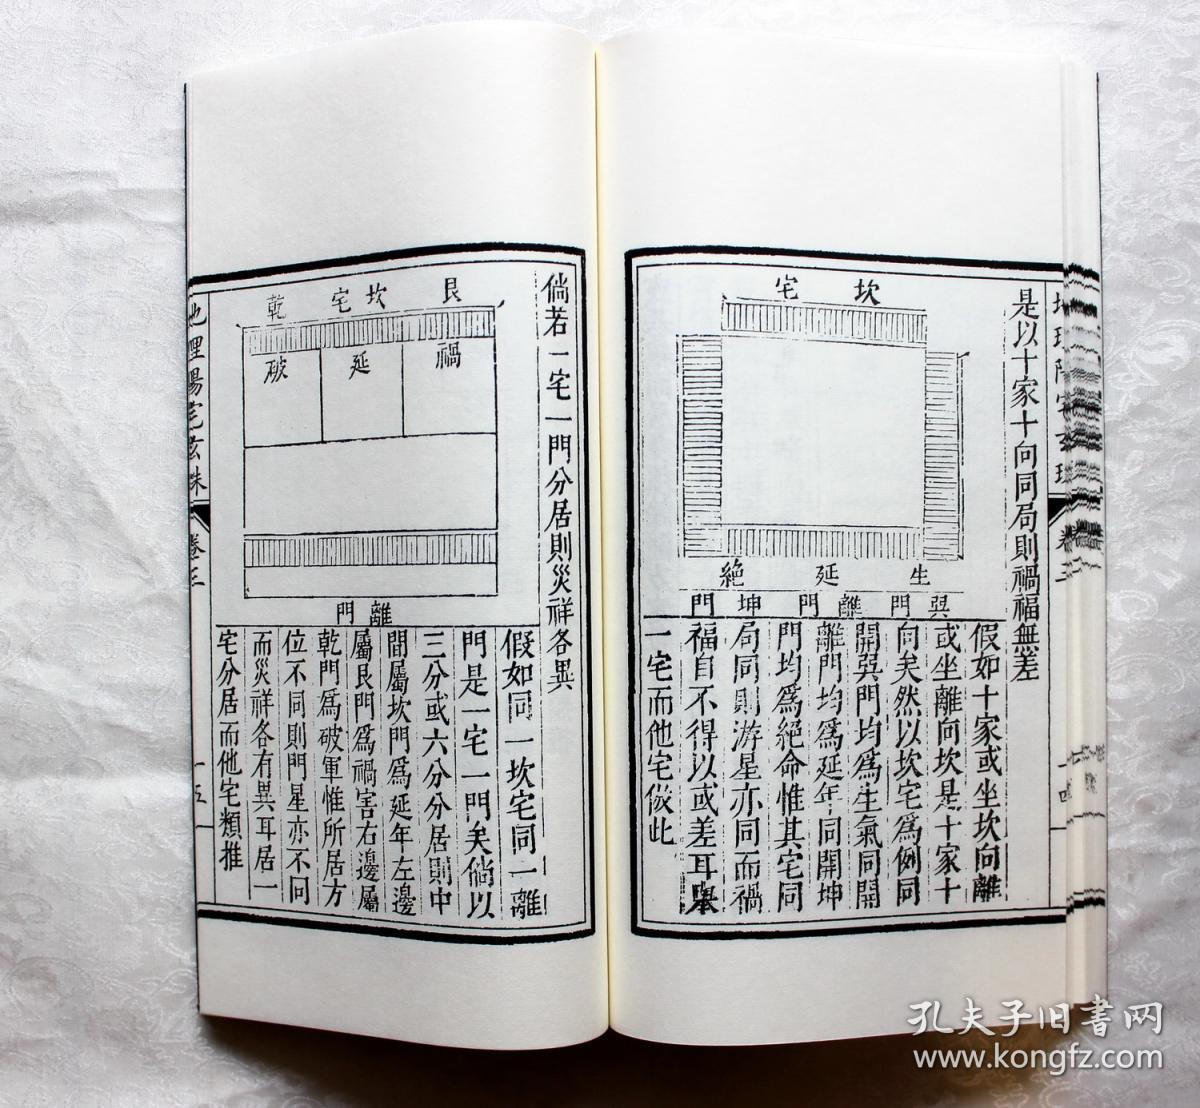 是以十家十向同局則禍福無差
坎宅
生延絶
巽門離門坤門
假如十家或坐坎向離
或坐離向坎是十家十
向矣然以坎宅爲例同
開巽門均爲生氣同開
離門均爲延年同開坤
門均爲絶命惟其宅同
局同則游星亦同而禍
福自不得以或差耳舉
一宅而他宅倣此
倘若一宅一門分居則災祥各異
艮坎宅乾
禍延破
離門
假如同一坎宅同一離
門是一宅一門矣倘以
三分或六分分居則中
間屬坎門爲延年左邊
屬艮門爲禍害右邊屬
乾門爲破軍惟所居方
位不同則門星亦不同
而災祥各有異耳居一
宅分居而他宅類推
地理陽宅玄珠
卷三
十五
卷三
十四
孔夫子旧書网
www.kongfz.com